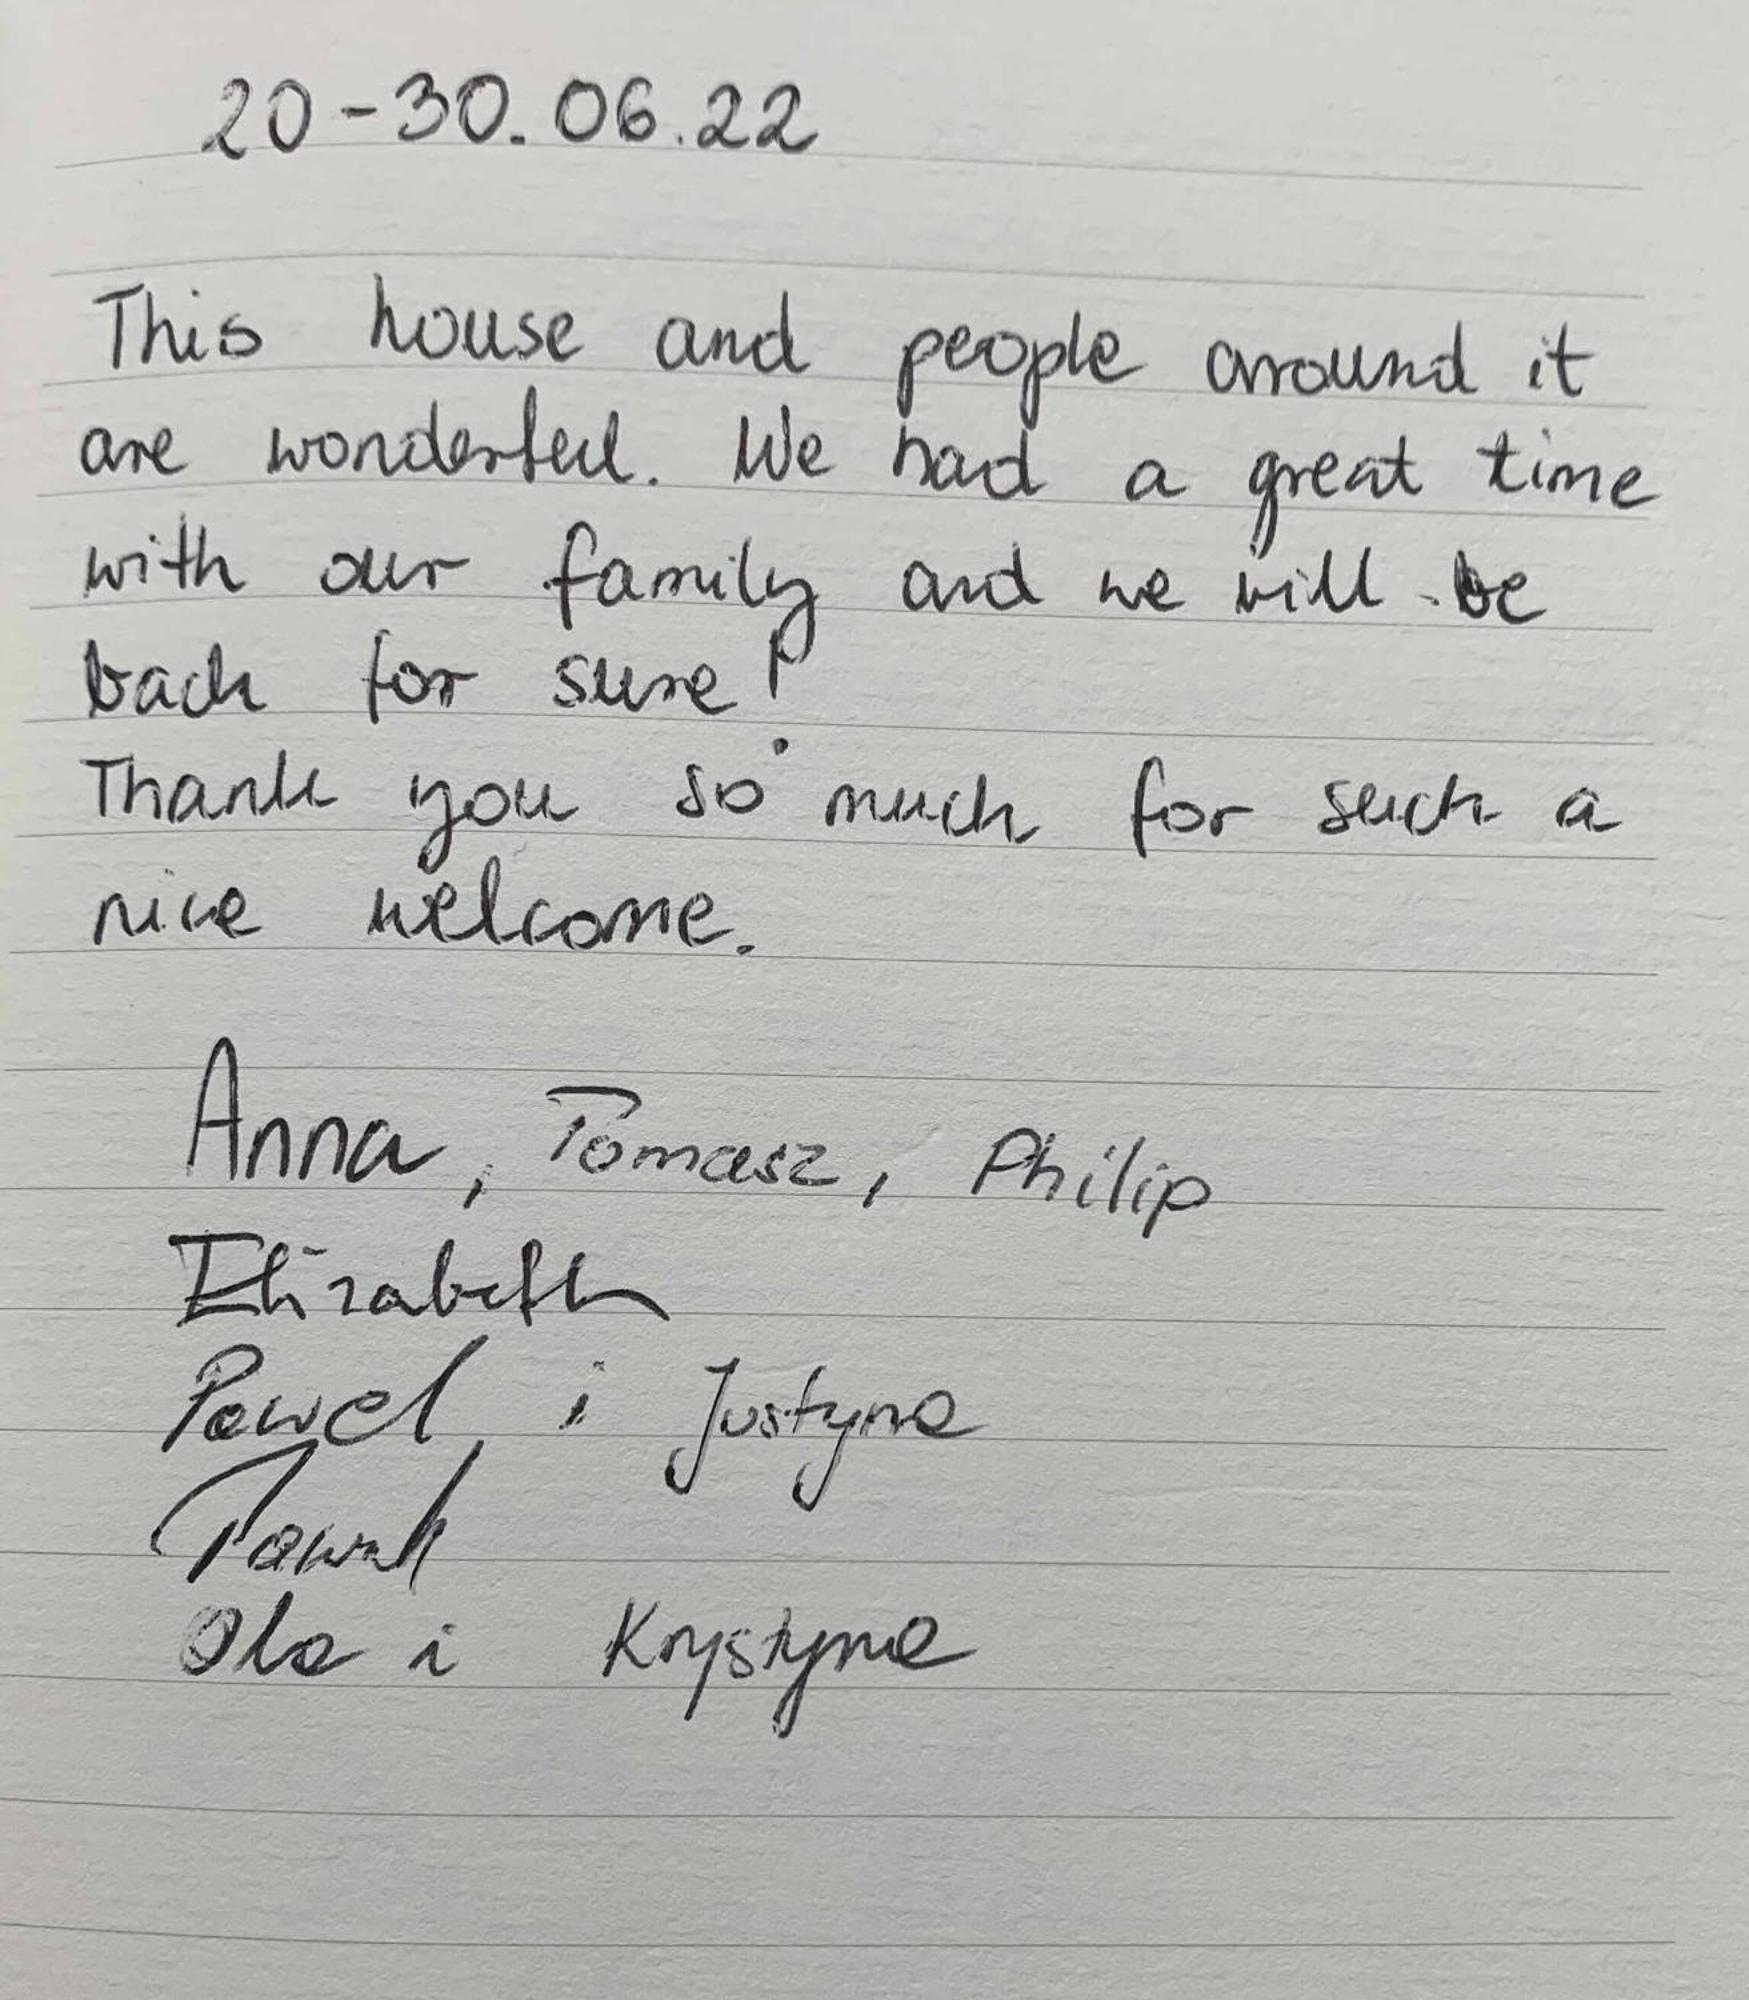 20-30.06.22
This house and people around it
are wonderful. We had a great time
with our family and we will be
back for sure!
Thank you so much for such a
nice welcome.
Anna, Tomasz, Philip
Elizabeth
Paweł i Justyna
Ola i Krystyna